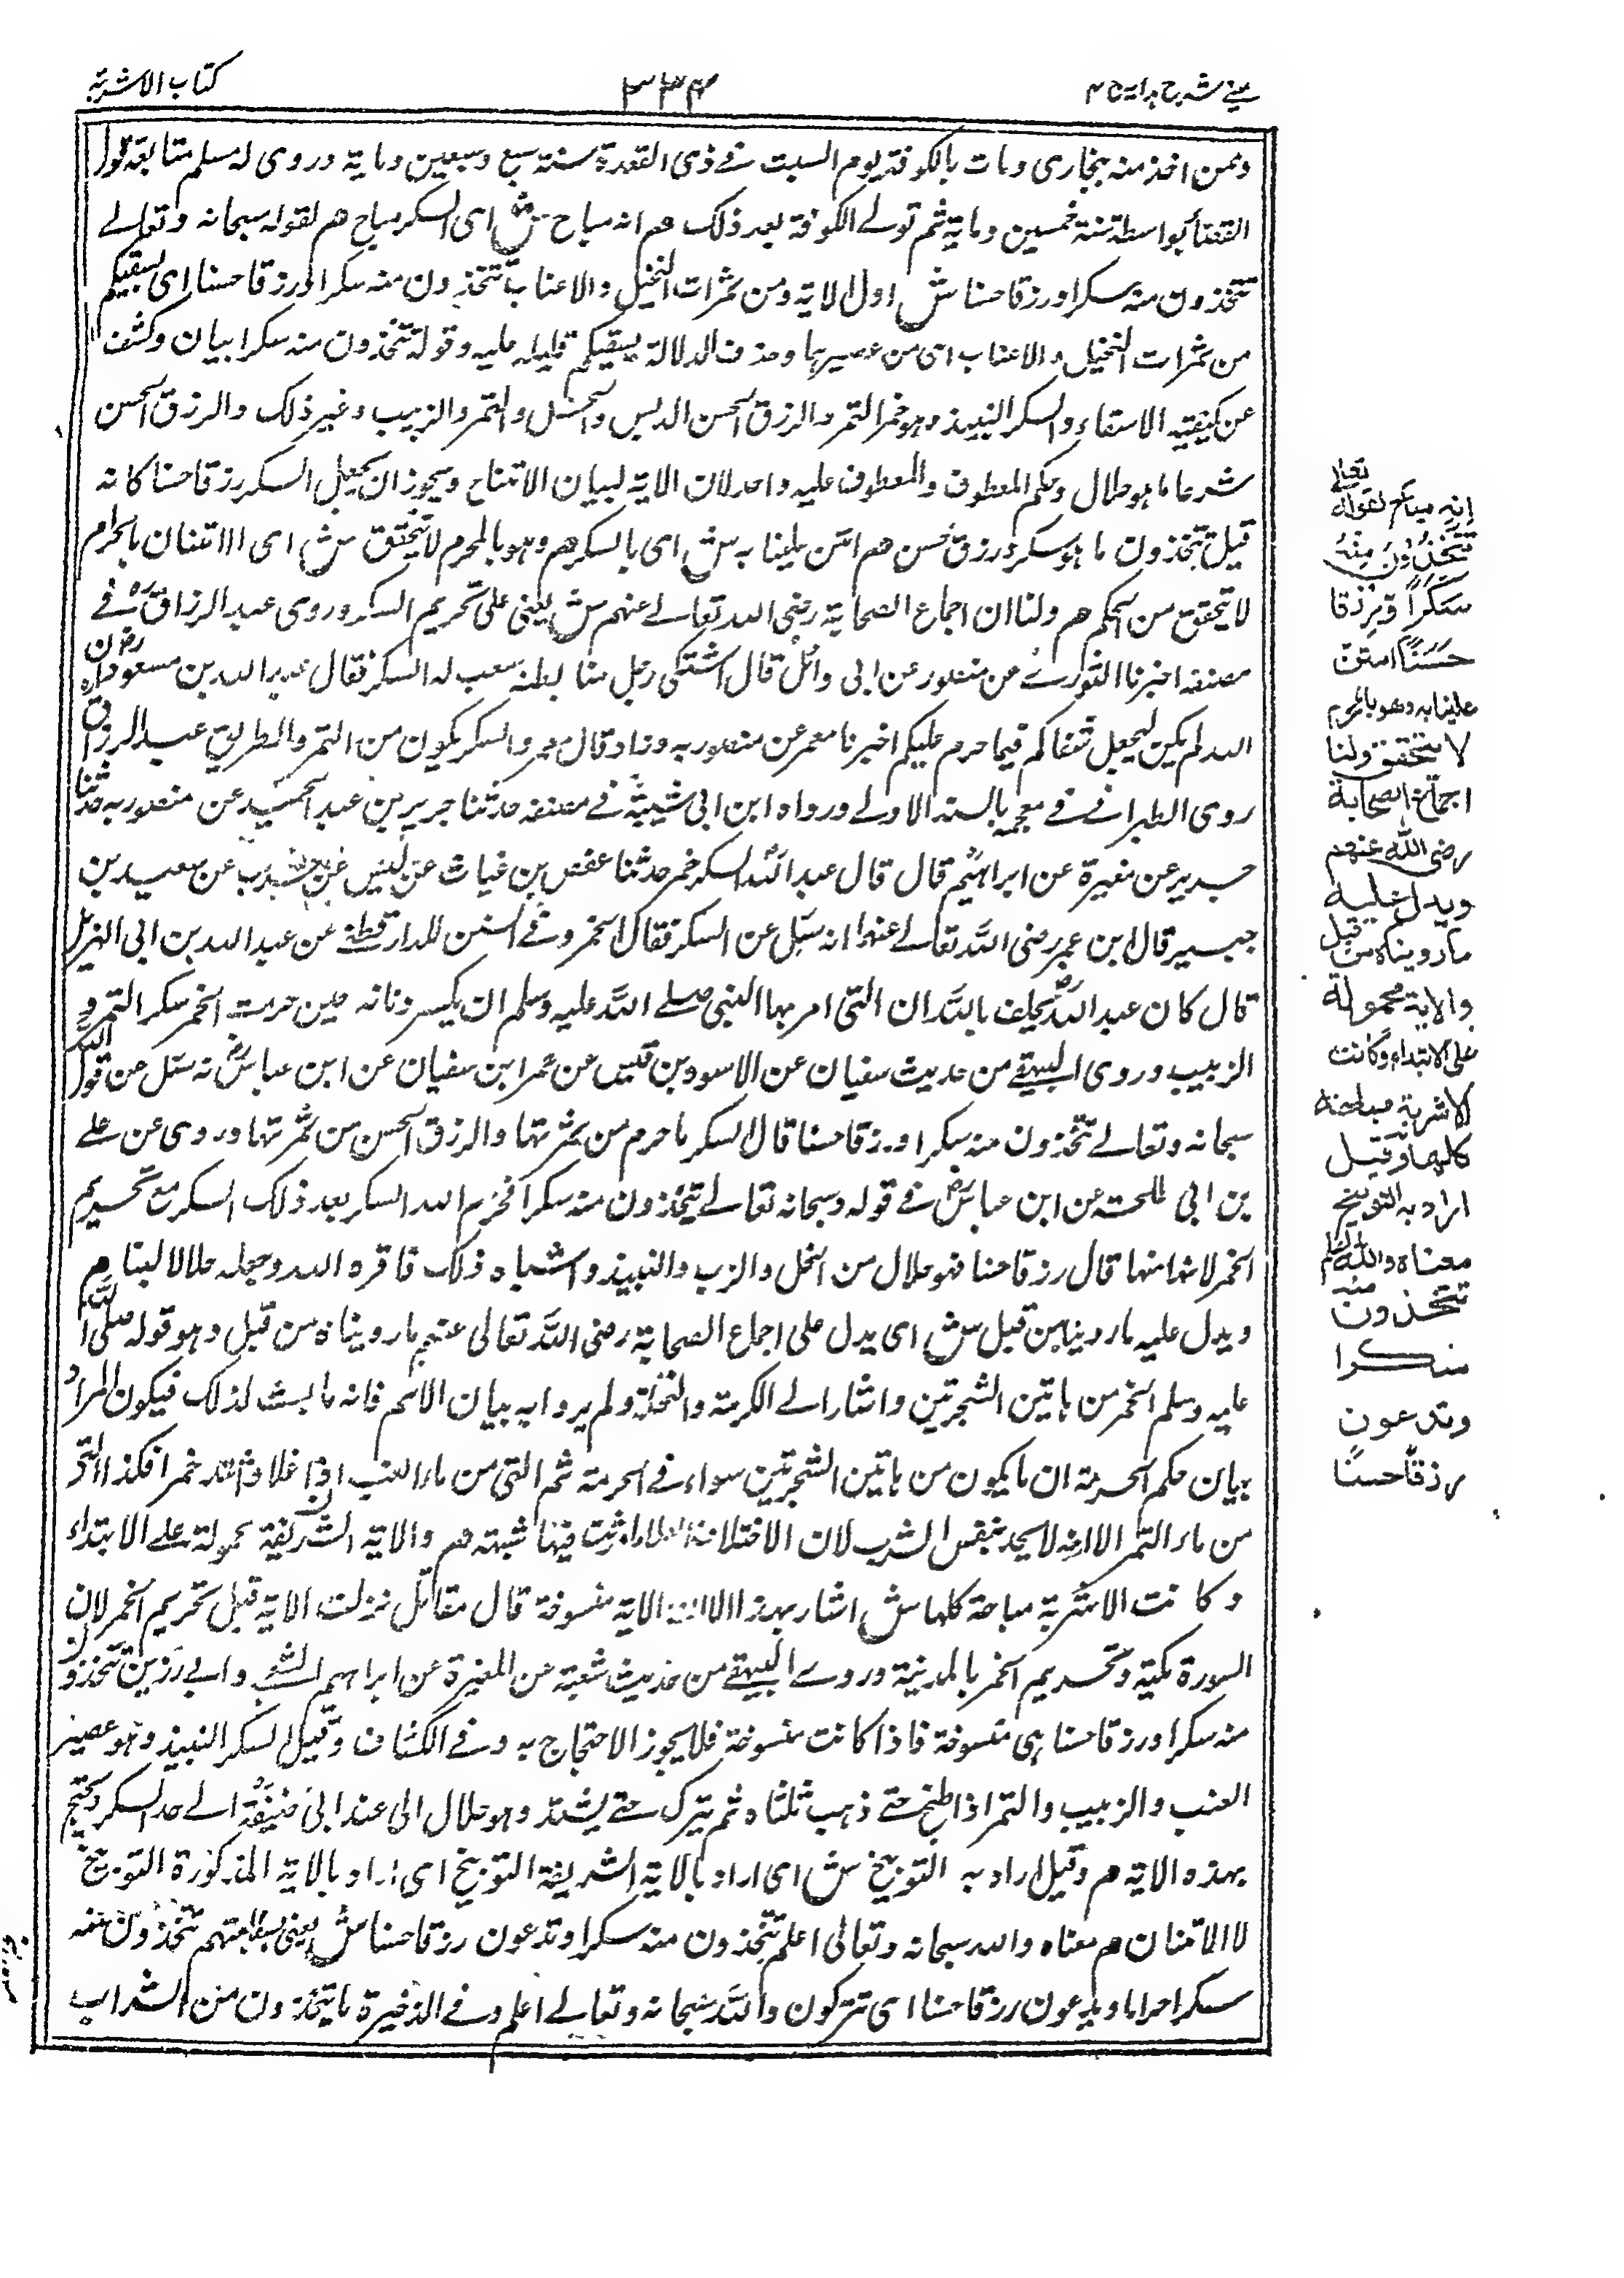 عینے شرح ہدایہ ج ۴
۳۳۴
کتاب الاشربة
وممن اخذ منه بخاری ومات بالکوفة یوم السبت فے ذی القعدة سنة سبع وسبعین ومایة وروی له مسلم متابعة تولی
القضا بواسط سنة خمسین ومایة ثم تولے الکوفة بعد ذلک هم انه مباح ش ای السکر مباح هم لقوله سبحانه وتعالے
تتخذون منه سکرا ورزقا حسنا ش اول الایة ومن ثمرات النخیل والاعناب تتخذون منه سکرا ورزقا حسنا ای یسقیکم
من ثمرات النخیل والاعناب ای من عصیرہا وحذف لدلالة یسقیکم قبله علیه وقوله تتخذون منه سکرا بیان وکشف
عن کیفیة الاسقاء والسکر النبیذ وہو خمر التمر والرزق الحسن الدبس والخل والتمر والزبیب وغیر ذلک والرزق الحسن
شرعا ما ہو حلال وحکم المعطوف والمعطوف علیه واحد لان الایة لبیان الامتنان ویجوز ان یجعل السکر رزقا حسنا کانه
قیل تتخذون ما ہو سکر ورزق حسن هم امتن علینا به ش ای بالسکر هم وہو بالمحرم لا یتحقق ش ای الامتنان بالحرام
لا یتحقق من الحکم هم ولنا ان اجماع الصحابة رضی الله تعالے عنهم ش یعنی علی تحریم السکر وروی عبد الرزاق فے
مصنفه اخبرنا الثوری عن منصور عن ابی وائل قال اشتکی رجل منا بطنه فنعت له السکر فقال عبد الله بن مسعود رض ان
الله لم یکن لیجعل شفاکم فیما حرم علیکم اخبرنا معمر عن منصور به وزاد قال معمر والسکر یکون من التمر والطریق عبد الرزاق
روی الطبرانے فے معجمه بالسند الاولے ورواه ابن ابی شیبة فے مصنفه حدثنا جریر بن عبد الحمید عن منصور به حدثنا
جریر عن مغیرة عن ابراہیم قال قال عبد الله السکر خمر حدثنا حفص بن غیاث عن لیث عن حرب عن سعید بن
جبیر قال ابن عمر رضی الله تعالے عنهما انه سئل عن السکر فقال الخمر وفے السنن للدارقطنے عن عبد الله بن ابی الہزیل
قال کان عبد الله یحلف بالله ان التی امر بها النبی صلے الله علیه وسلم ان یکسر دنانه حین حرمت الخمر سکر التمر و
الزبیب وروی البیہقے من حدیث سفیان عن الاسود بن قیس عن عمر ابن سفیان عن ابن عباس انه سئل عن قول الله
سبحانه وتعالے تتخذون منه سکرا ورزقا حسنا قال السکر ما حرم من ثمرتها والرزق الحسن من ثمرتها وروی عن علے
بن ابی طلحة عن ابن عباس فے قوله وسبحانه تعالے تتخذون منه سکرا فحرم الله السکر بعد ذلک السکر مع تحریم
الخمر لانه منها قال رزقا حسنا فهو حلال من الخل والزب والنبیذ واشباه ذلک فاقره الله وجعله حلالا لبنا هم
ویدل علیه ما روینا من قبل ش ای یدل علی اجماع الصحابة رضی الله تعالی عنهم ما رویناه من قبل وہو قوله صلی الله
علیه وسلم الخمر من ہاتین الشجرتین واشار الے الکرمة والنخلة ولم یرد به بیان الاسم فانه ما بعث لذلک فیکون المراد
بیان حکم الحرمة ان ما یکون من ہاتین الشجرتین سواء فے الحرمة ثم التی من ماء العنب اذا غلا واشتد خمرا فکذا التی
من ماء التمر الا انه لا یحد بنفس الشرب لان الاختلاف ثبت فیها شبهة هم والایة الشریفة محمولة علے الابتداء
وکانت الاشربة مباحة کلها ش اشار بهذا الی ان الایة منسوخة قال مقاتل نزلت الایة قبل تحریم الخمر لان
السورة مکیة وتحریم الخمر بالمدینة وروے البیہقے من حدیث شعبة عن المغیرة عن ابراہیم والشعبی وابے رزین تتخذون
منه سکرا ورزقا حسنا ہی منسوخة فاذا کانت منسوخة فلا یجوز الاحتجاج به وفے الکشاف وقیل السکر النبیذ وہو عصیر
العنب والزبیب والتمر اذا طبخ حتے ذہب ثلثاه ثم یترک حتے یشتد وہو حلال الی عند ابی حنیفة الے حد السکر ویحتج
بهذه الایة هم وقیل اراد به التوبیخ ش ای اراد بالایة الشریفة التوبیخ ای اراد بالایة المذکورة التوبیخ
لا الامتنان هم معناه والله سبحانه وتعالی اعلم تتخذون منه سکرا وتدعون رزقا حسنا ش یعنی بسفاهتهم تتخذون منه
سکرا حراما ویدعون رزقا حسنا ای تترکون والله سبحانه وتعالے اعلم وفے الذخیرة ما یتخذون من الشراب
إنه مباح لقوله تعالی
تَتَّخِذُوْنَ مِنْهُ
سَكَرًا وَرِزْقًا
حَسَنًا امتن
علینا به وهو بالمحرم
لا یتحقق ولنا
اجماع الصحابة
رضی الله عنهم
ویدل علیه
ما رویناه من قبل
والایة محمولة
علی الابتداء وکانت
الاشربة مباحة
کلها وقیل
اراد به التوبیخ
معناه والله اعلم
تتخذون منه
سکرا
وتدعون
رزقا حسنا